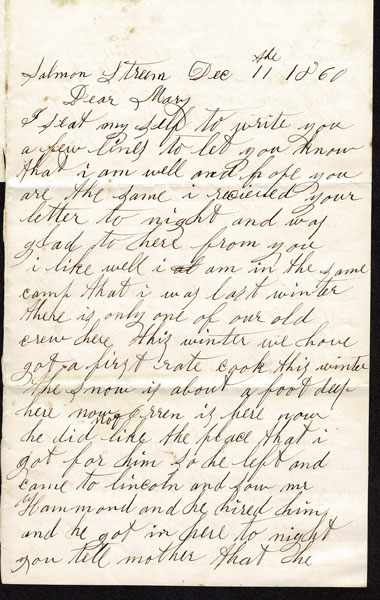 Salmon Streem Dec the 11 1860
Dear Mary
I seat my self to write you
a few lines to let you know
that i am well and hope you
are the same i recieved your
letter to night and was
glad to here from you
i like well i am in the same
camp that i was last winter
there is only one of our old
crew here this winter we have
got a first rate cook this winter
the snow is about a foot deep
here now Orren is here now
he did not like the place that i
got for him so he left and
came to lincoln and saw mr
Hammond and he hired him
and he got in here to night
you tell mother that she